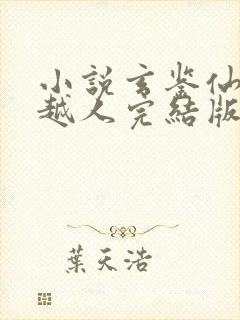 小說玄鉴仙
越人完結版
葉天浩